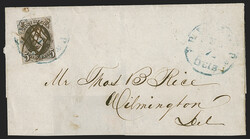 Mr Thos B Rice
Wilmington
Del